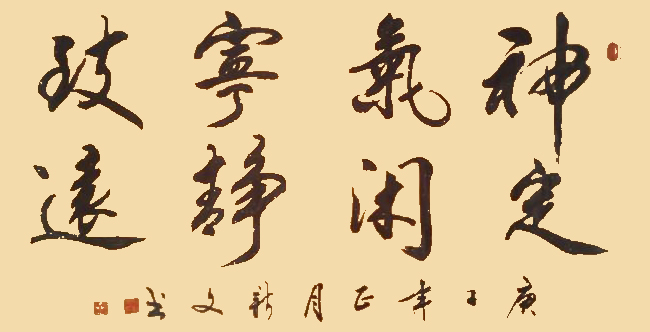 神定
氣閑
寧靜
致遠
庚子年正月新文书